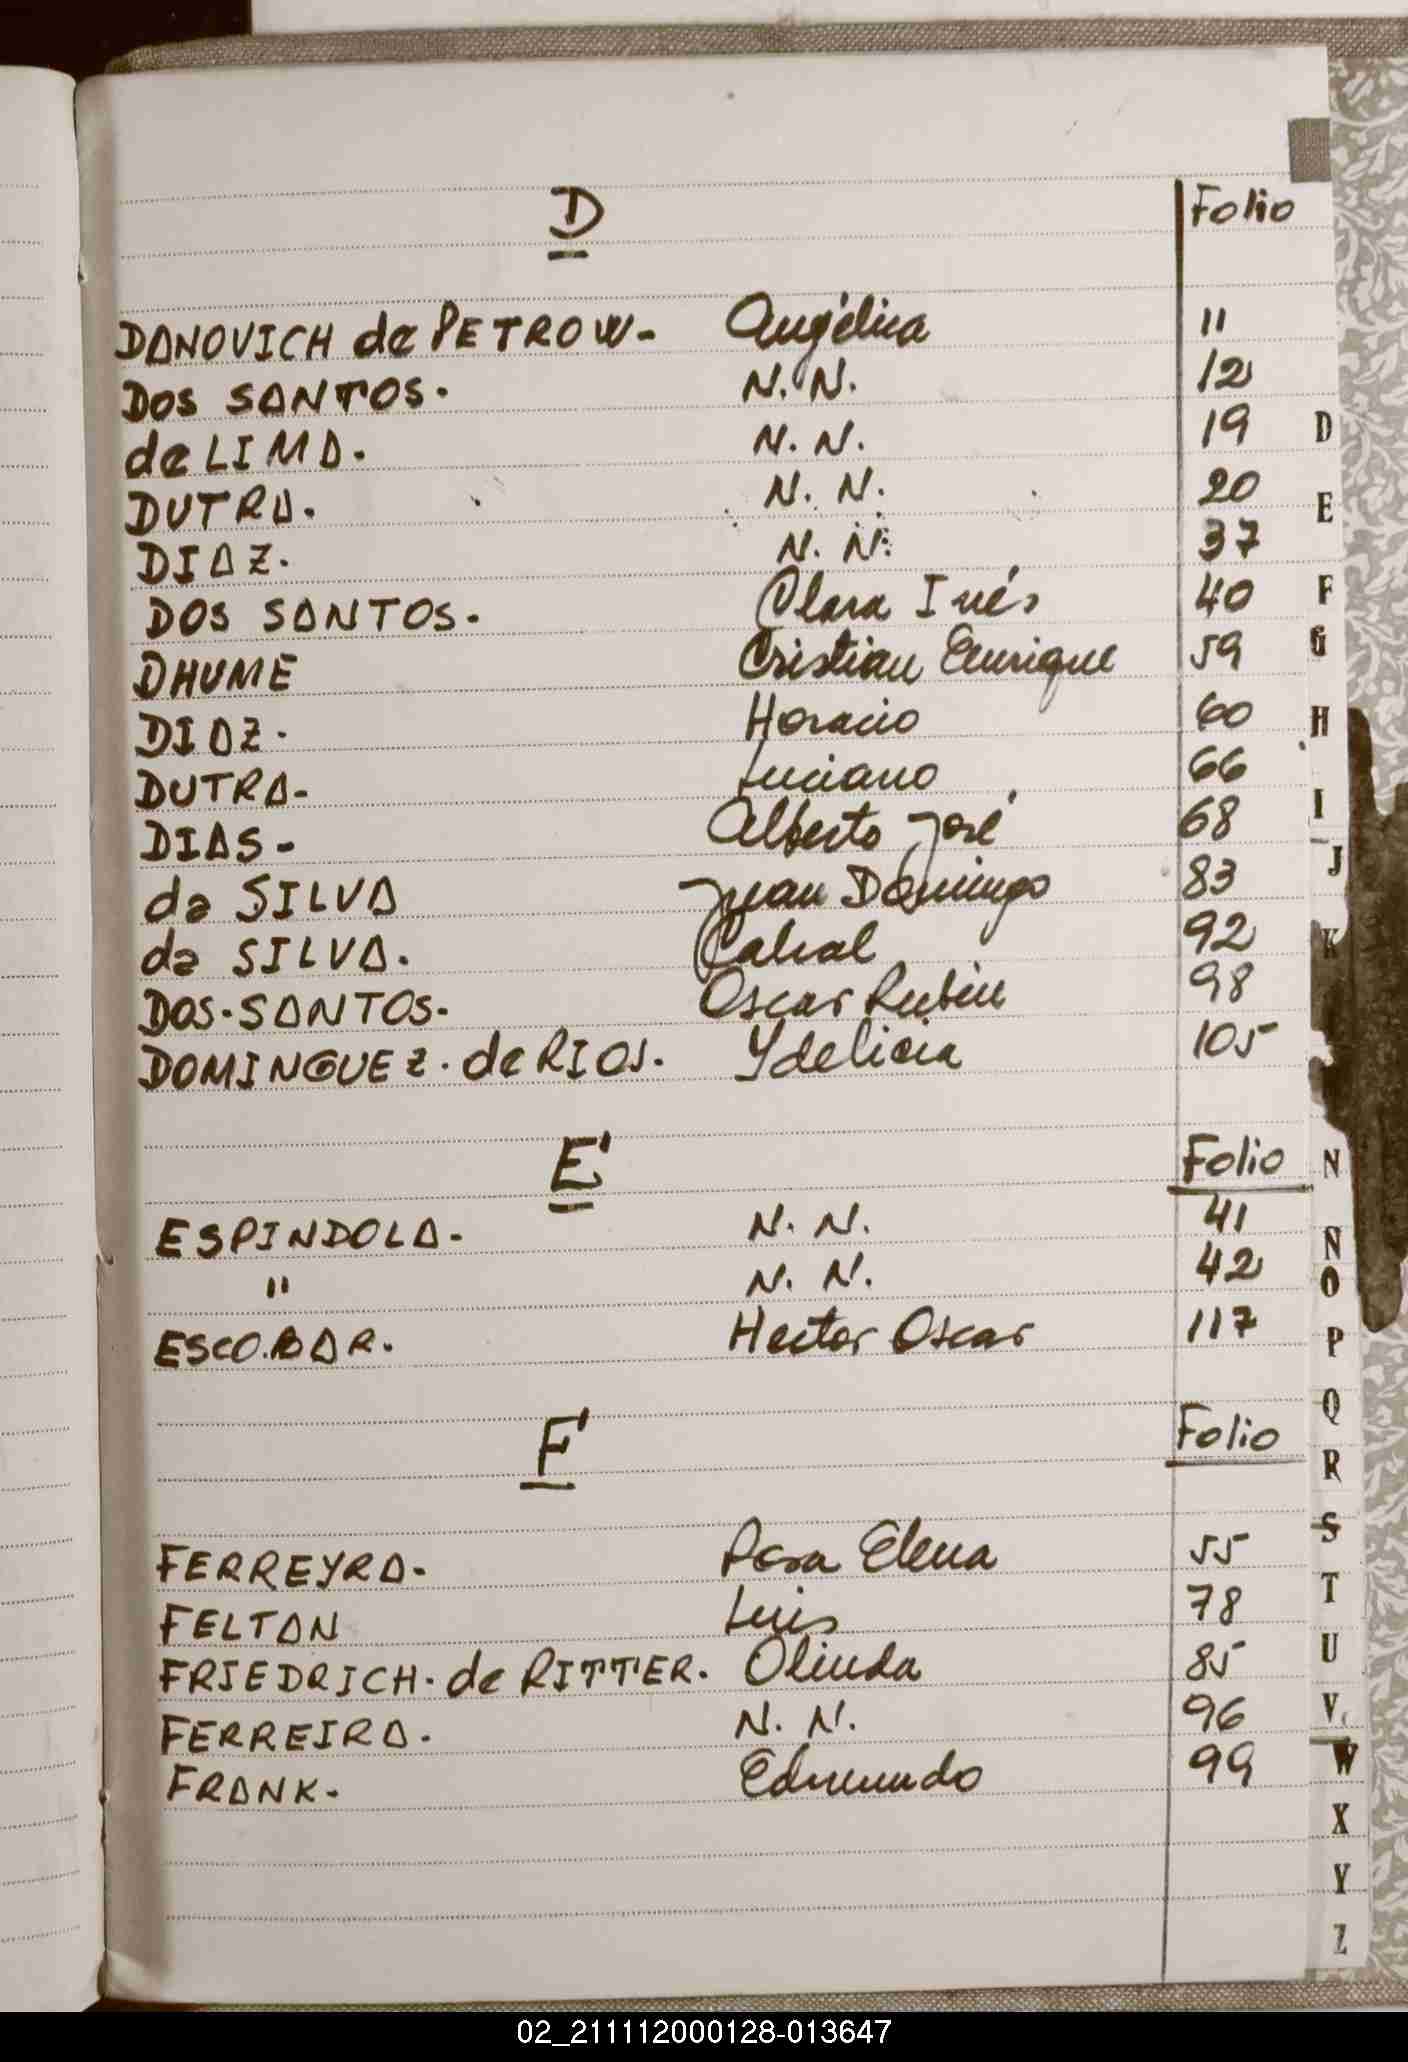 D Folio
DANOVICH de PETROW- Angélica 11
DOS SANTOS. N. N. 12
de LIMA. N. N. 19
DUTRA. N. N. 20
DIAZ. N. N. 37
DOS SANTOS. Clara Inés 40
DHUME Cristian Enrique 59
DIAZ. Horacio 60
DUTRA- Luciano 66
DIAS- Alberto José 68
da SILVA Juan Domingo 83
da SILVA. Cabral 92
DOS-SANTOS. Oscar Rubén 98
DOMINGUEZ. de RIOS. Ydelicia 105
E Folio
ESPINDOLA. N. N. 41
" N. N. 42
ESCOBAR. Hector Oscar 117
F Folio
FERREYRA. Rosa Elena 55
FELTAN Luis 78
FRIEDRICH. de RITTER. Olinda 85
FERREIRA. N. N. 96
FRANK. Edmundo 99
D
E
F
G
H
I
J
K
N
N
O
P
Q
R
S
T
U
V
W
X
Y
Z
02_211112000128-013647